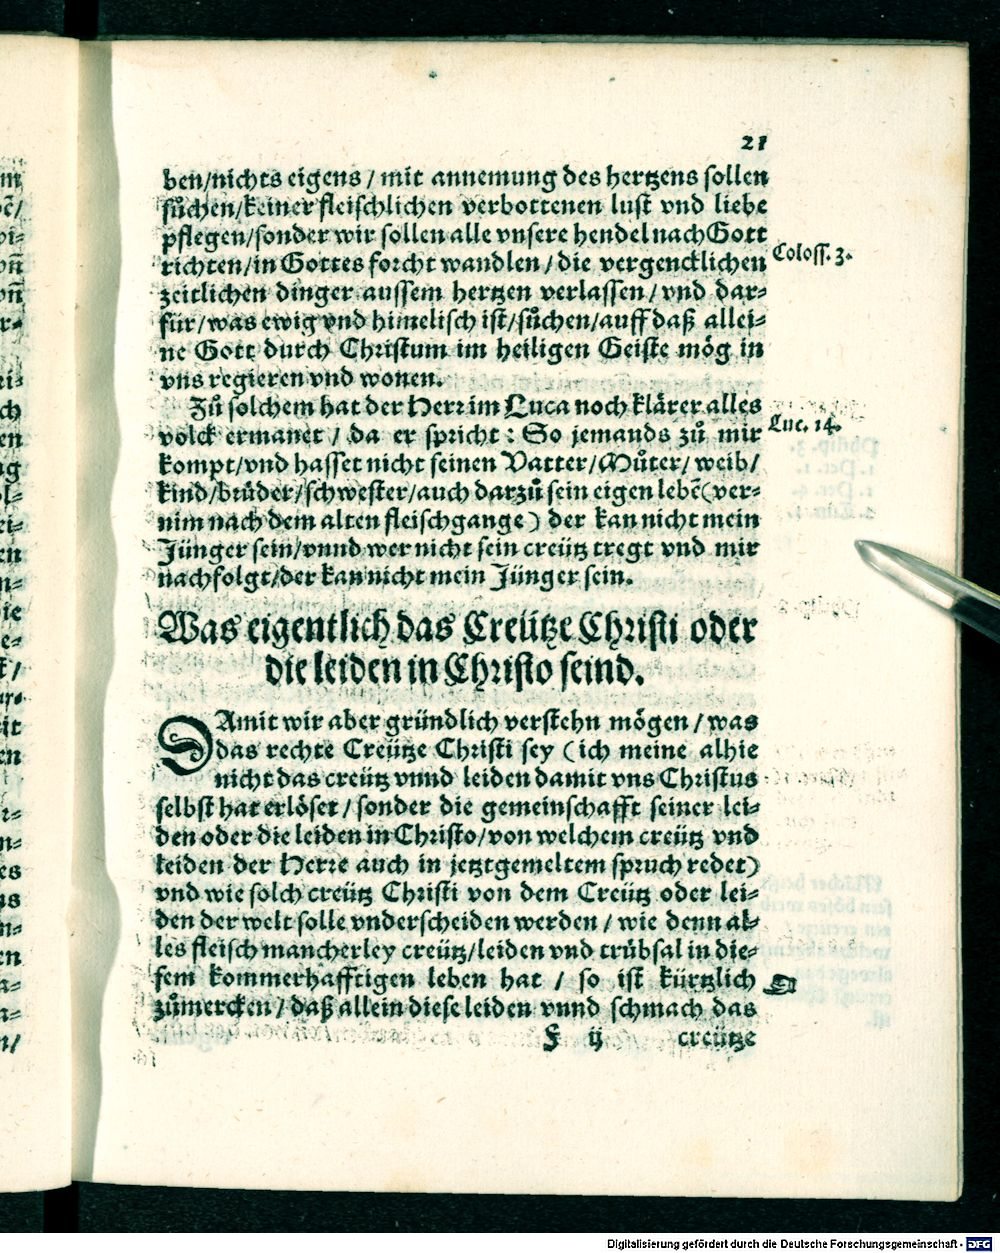 21
ben/nichts eigens / mit annemung des hertzens sollen
sůchen/keiner fleischlichen verbottenen lust vnd liebe
pflegen/sonder wir sollen alle vnsere hendel nach Gott
richten/in Gottes forcht wandlen / die vergencklichen
Coloss. 3.
zeitlichen dinger aussem hertzen verlassen / vnd dar-
für/was ewig vnd himelisch ist/sůchen/auff daß allei-
ne Gott durch Christum im heiligen Geiste mög in
vns regieren vnd wonen.
Zů solchem hat der Herr im Luca noch klärer alles
Luc. 14.
volck ermanet / da er spricht : So jemands zů mir
kompt/vnd hasset nicht seinen Vatter/Můter/ weib/
kind/brüder/schwester/auch darzů sein eigen lebē(ver-
nim nach dem alten fleischgange) der kan nicht mein
Jünger sein/vnnd wer nicht sein creütz tregt vnd mir
nachfolgt/der kan nicht mein Jünger sein.
Was eigentlich das Creütze Christi oder
die leiden in Christo seind.
DAmit wir aber gründlich verstehn mögen / was
das rechte Creütze Christi sey (ich meine alhie
nicht das creütz vnnd leiden damit vns Christus
selbst hat erlöset / sonder die gemeinschafft seiner lei-
den oder die leiden in Christo/von welchem creütz vnd
leiden der Herre auch in jetztgemeltem spruch redet)
vnd wie solch creütz Christi von dem Creütz oder lei-
den der welt solle vnderscheiden werden / wie denn al-
les fleisch mancherley creütz/leiden vnd trůbsal in die-
sem kommerhafftigen leben hat / so ist kürtzlich
zůmercken / daß allein diese leiden vnnd schmach das
F ij creütze
Digitalisierung gefördert durch die Deutsche Forschungsgemeinschaft - DFG